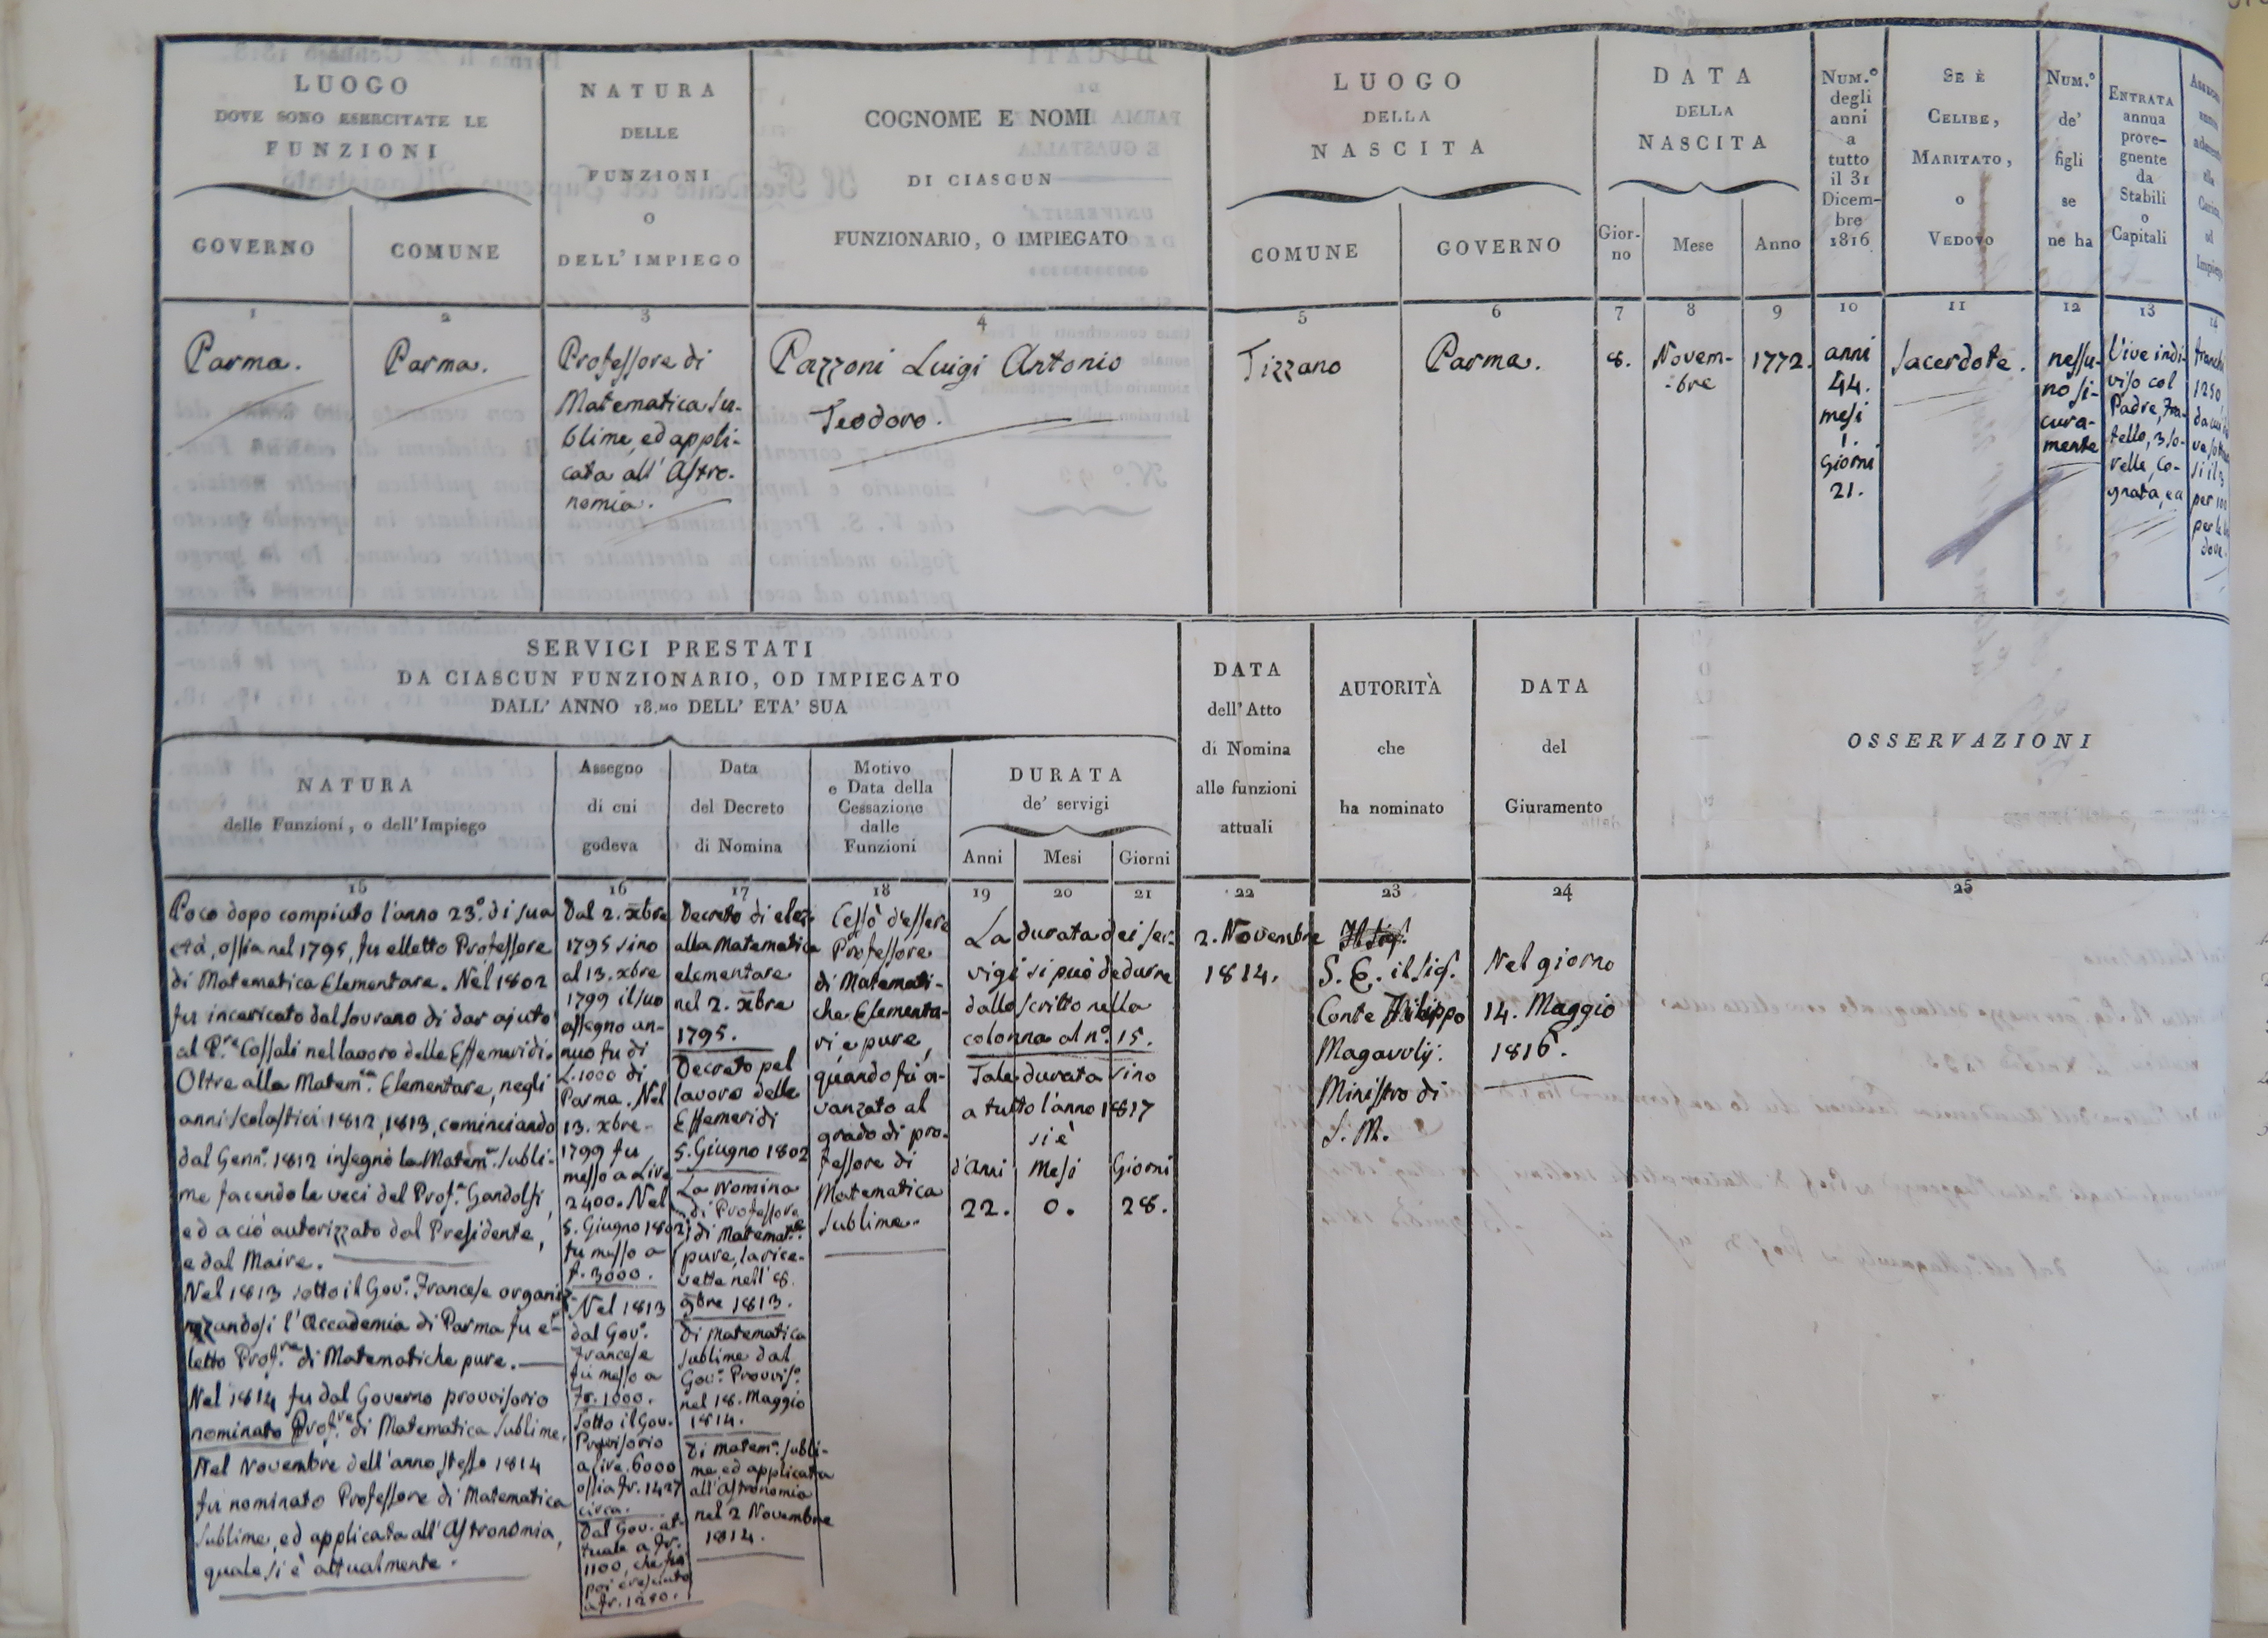 LUOGO
DOVE SONO ESERCITATE LE
FUNZIONI
GOVERNO
COMUNE
NATURA
DELLE
FUNZIONI
O
DELL' IMPIEGO
COGNOME E NOMI
DI CIASCUN
FUNZIONARIO, O IMPIEGATO
LUOGO
DELLA
NASCITA
COMUNE
GOVERNO
DATA
DELLA
NASCITA
Gior-
no
Mese
Anno
NUM.º
degli
anni
a
tutto
il 31
Dicem-
bre
1816
SE È
CELIBE,
MARITATO,
O
VEDOVO
NUM.º
de'
figli
se
ne ha
ENTRATA
annua
prove-
gnente
da
Stabili
o
Capitali
Impiego
1
2
3
4
5
6
7
8
9
10
11
12
13
14
Parma.
Parma.
Professore di
Matematica su-
blime, ed appli-
cata all' Astro-
nomia.
Pazzoni Luigi Antonio
Teodoro.
Tizzano
Parma.
8.
Novem-
-bre
1772.
anni
44.
mesi
1.
giorni
21.
Sacerdote.
nessu-
no si-
cura-
mente
Vive indi-
viso col
Padre, Fra-
tello, 3 So-
relle, Co-
gnata, ea
franchi
1250,
si il 3
per 100
per le
dove.
SERVIGI PRESTATI
DA CIASCUN FUNZIONARIO, OD IMPIEGATO
DALL' ANNO 18.MO DELL' ETA' SUA
NATURA
delle Funzioni, o dell'Impiego
Assegno
di cui
godeva
Data
del Decreto
di Nomina
Motivo
e Data della
Cessazione
dalle
Funzioni
DURATA
de' servigi
Anni
Mesi
Giorni
DATA
dell' Atto
di Nomina
alle funzioni
attuali
AUTORITÀ
che
ha nominato
DATA
del
Giuramento
OSSERVAZIONI
15
16
17
18
19
20
21
22
23
24
25
Poco dopo compiuto l'anno 23º. di sua
età, ossia nel 1795, fu elletto Professore
di Matematica Elementare. Nel 1802
fu incaricato dal Sovrano di dar ajuto
al P.re Cossali nel lavoro delle Effemeridi.
Oltre alla Matem.ca Elementare, negli
anni scolastici 1812, 1813, cominciando
dal Genn.º 1812 insegnò la Matem.ca subli-
me facendo le veci del Prof.re Gandolfi,
ed a ciò autorizzato dal Presidente,
e dal Maire.
Nel 1813 sotto il Gov.º Francese organi-
zzandosi l'Accademia di Parma fu e-
letto Prof.re di Matematiche pure.
Nel 1814 fu dal Governo provvisorio
nominato Prof.re di Matematica sublime.
Nel Novembre dell'anno stesso 1814
fu nominato Professore di Matematica
sublime, ed applicata all' Astronomia,
quale si è attualmente.
Dal 2. xbre
1795 sino
al 13. xbre
1799 il suo
assegno an-
nuo fu di
L. 1000 di
Parma. Nel
13. xbre
1799 fu
messo a Live
2400. Nel
5. Giugno 1802
fu messo a
f. 3000.
Nel 1813
dal Gov.º
Francese
fu messo a
Fr. 1000.
Sotto il Gov.
Provvisorio
a live. 6000
ossia fr. 1427
circa.
Dal Gov. at-
tuale a fr.
1100, che fu
poi cresciuto
a fr. 1250.
Decreto di elez.
alla Matematica
elementare
nel 2. xbre
1795.
Decreto pel
lavoro delle
Effemeridi
5. Giugno 1802
La Nomina
di Professore
di Matemat.e
pure, la rice-
vette nell' 8.
9bre 1813.
Di Matematica
sublime dal
Gov.º Provvis.º
nel 18. Maggio
1814.
Di matem.ca subli-
me, ed applicata
all'Astronomia
nel 2 Novembre
1814.
Cessò d'essere
Professore
di Matemati-
che Elementa-
ri, e pure,
quando fu a-
vanzato al
grado di pro-
fessore di
Matematica
sublime.
La durata dei ser-
vigi si può dedurre
dallo scritto nella
colonna al nº. 15.
Tale durata sino
a tutto l'anno 1817
si è
d'anni Mesi Giorni
22. 0. 28.
2. Novembre
1814.
S. E. il Sig.
Conte Filippo
Magawly.
Ministro di
S. M.
Nel giorno
14. Maggio
1816.